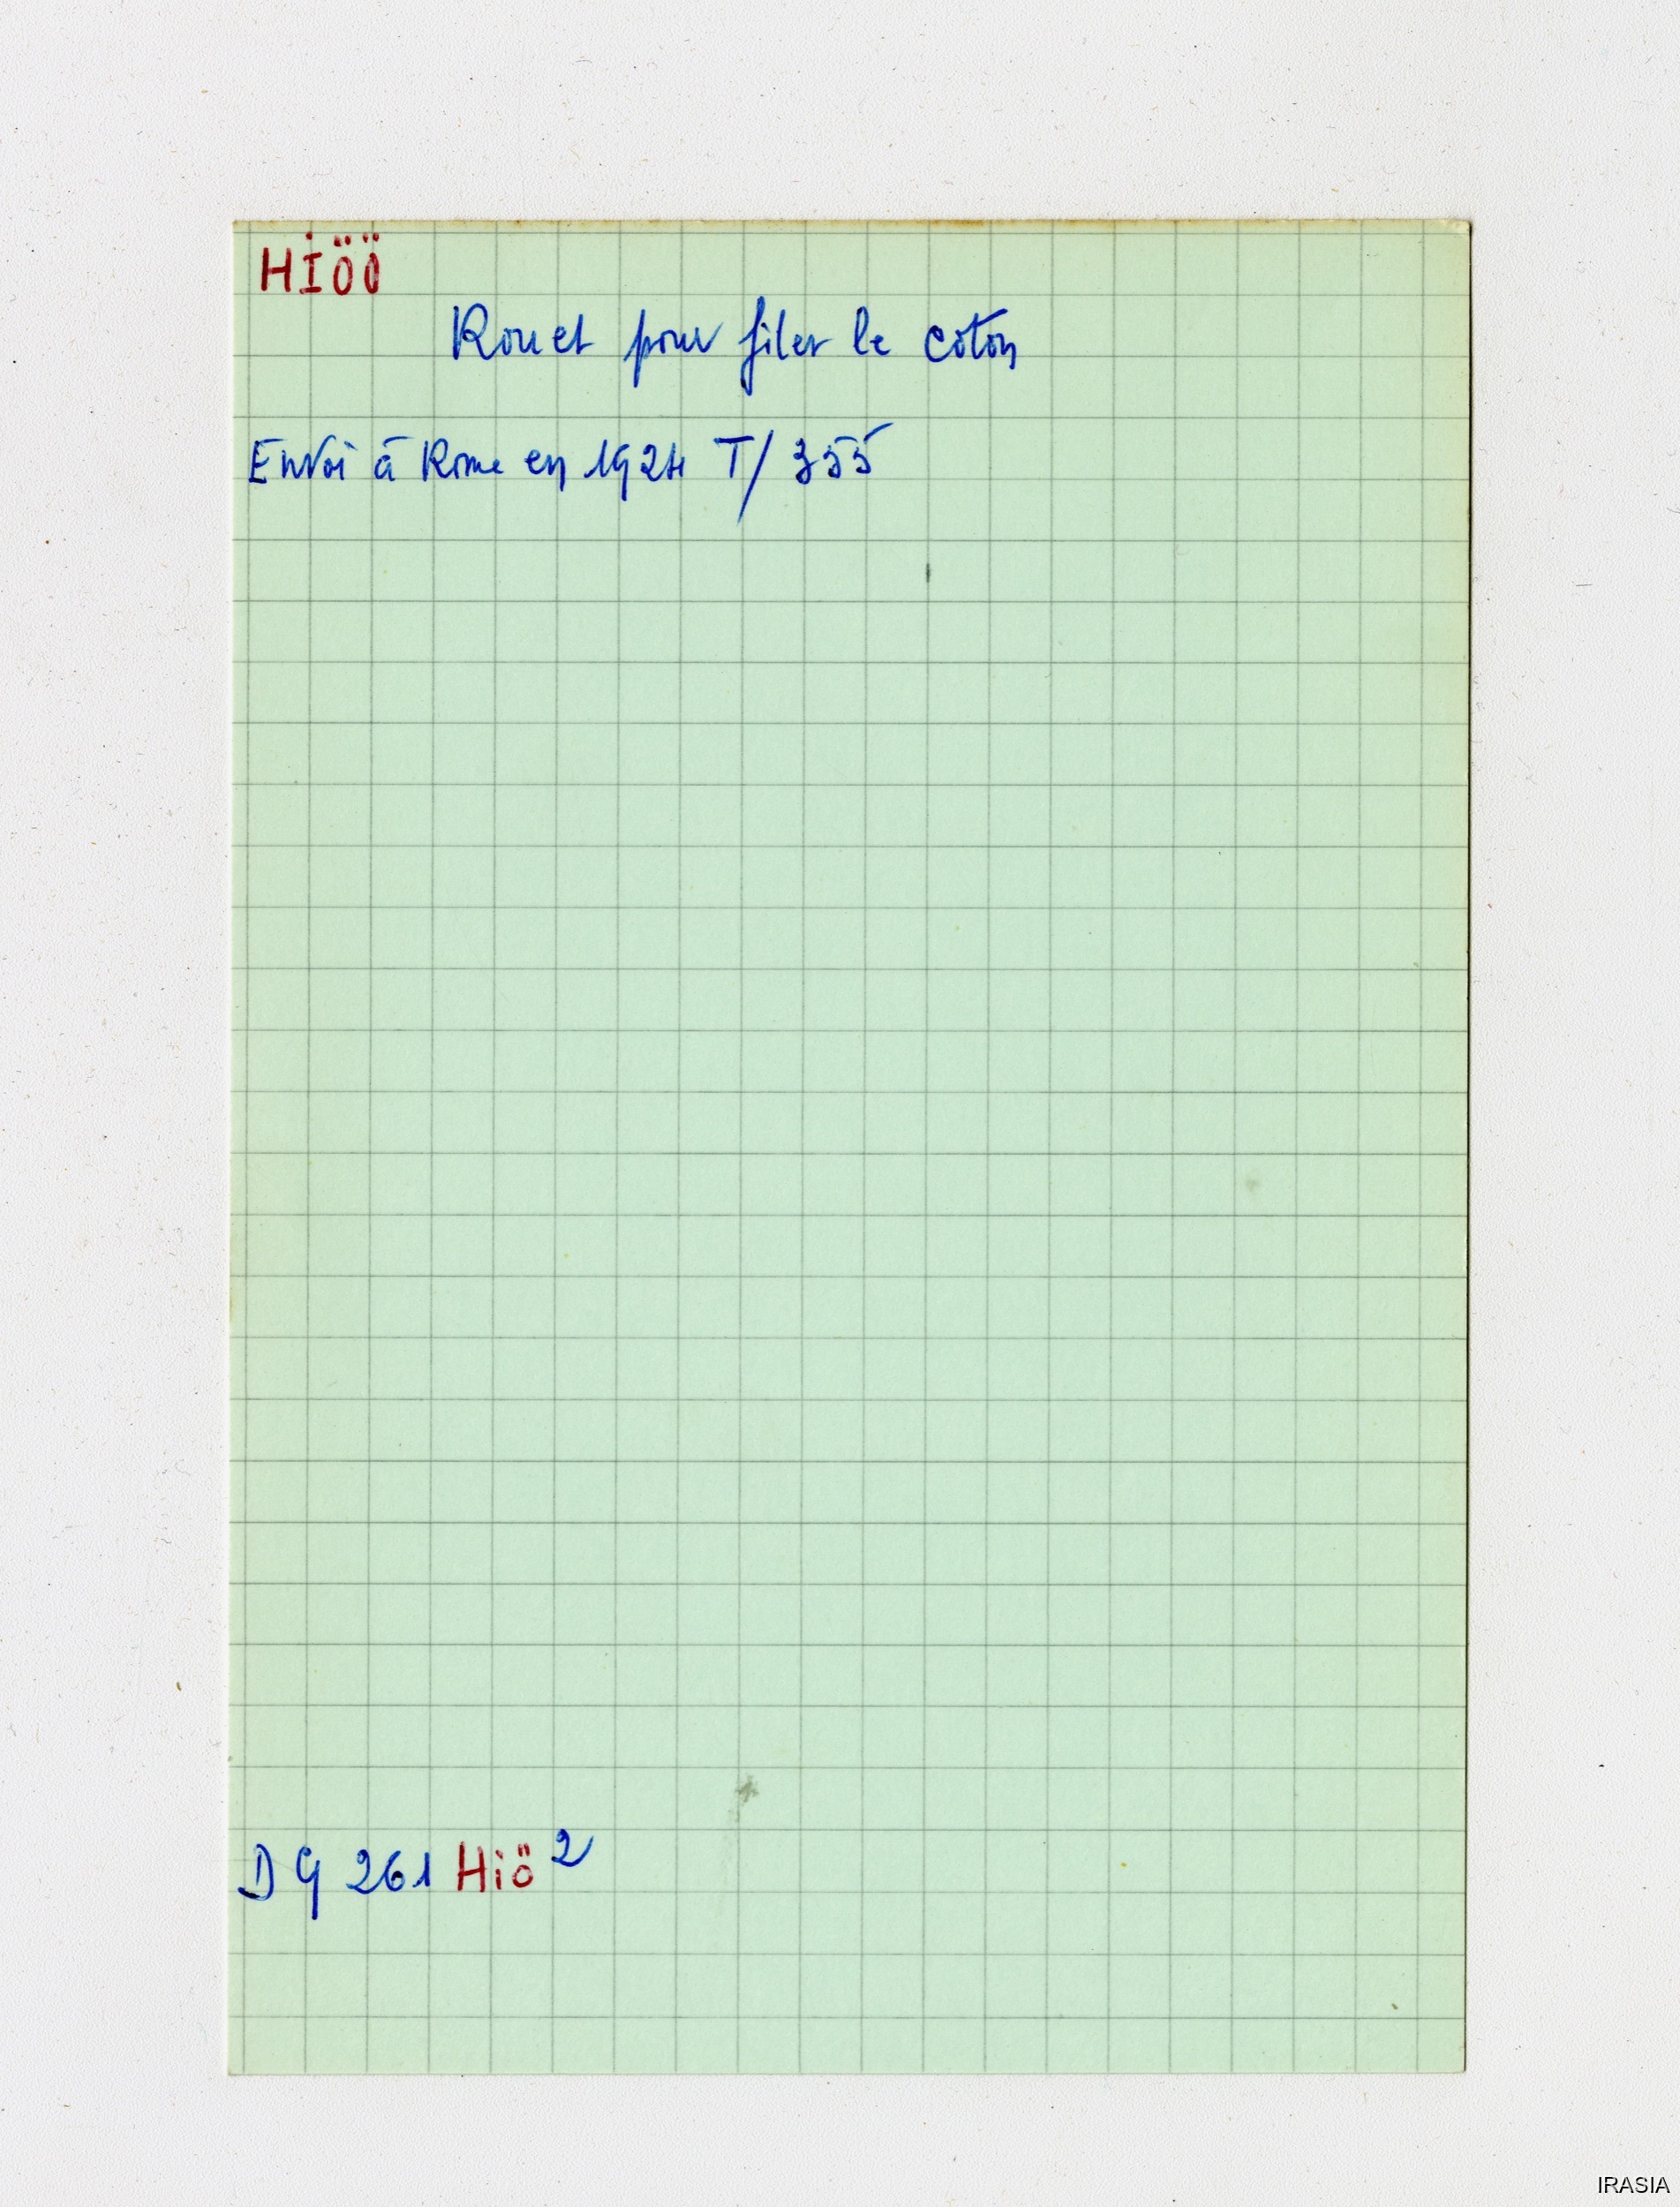 HIÖÖ
Rouet pour filer le coton
Envoi à Rome en 1924 T/ 355
DG 261 Hiö 2
IRASIA